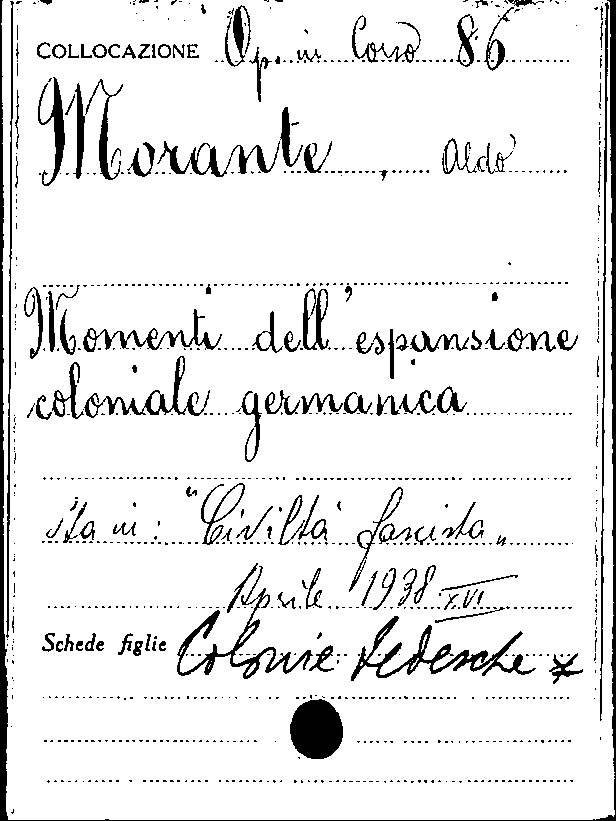 COLLOCAZIONE Op. in Corso 86
Morante, Aldo
Momenti dell'espansione
coloniale germanica
sta in: "Civiltà fascista"
Aprile 1938 XVI
Schede figlie Colonie Tedesche *